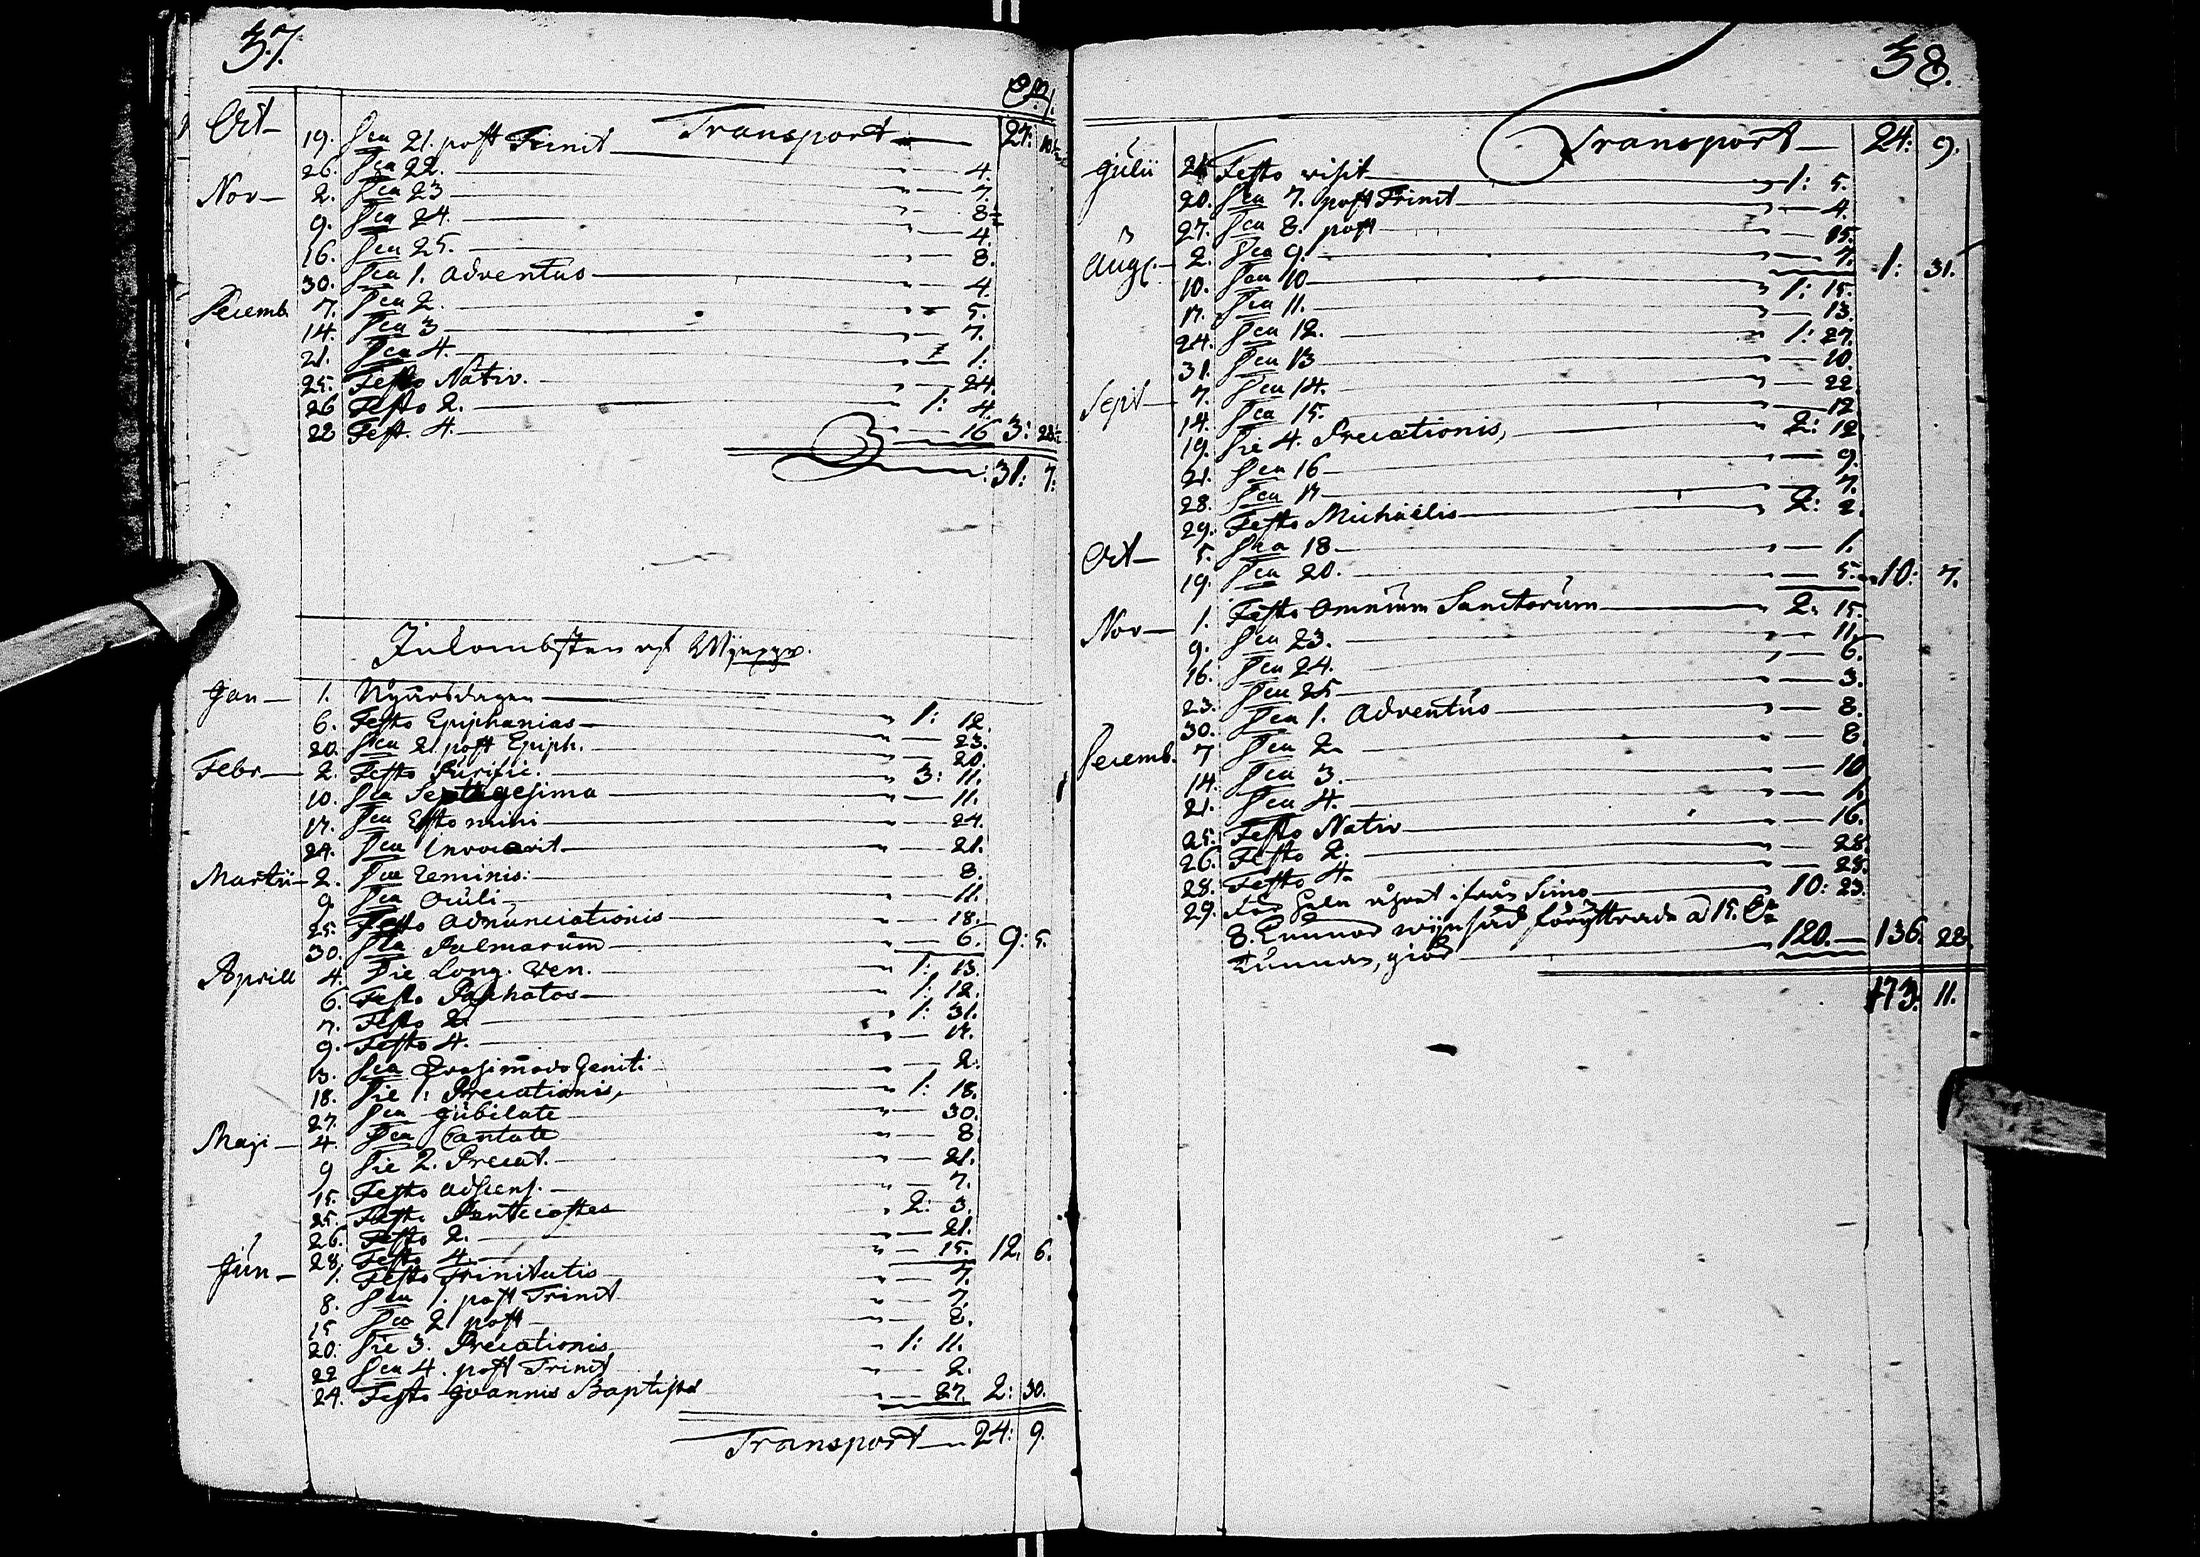 37.
Transport — 27: 10½
Oct — 19. Dca 21. post Trinit — 4.
26. Dca 22. — 7.
Nov — 2. Dca 23 — 8½
9. Dca 24. — 4.
16. Dca 25. — 8.
30. Dca 1. Adventus — 4.
Decemb. 7. Dca 2. — 5.
14. Dca 3 — 7.
21. Dca 4. — 1.
25. Festo Nativ. — 24.
26 Festo 2. — 1: 4.
22 Fest. 4. — 16 3: 28½
31: 7.
Inkombsten af
Jan — 1. Nyårsdagen — 1: 12
6. Festo Epiphanias — 23.
20. Dca 2. post Epiph. — 20.
Febr — 2. Festo Purific. — 3: 11.
10. Dca Septuagesima — 11.
17. Dca Estomihi — 24.
24. Dca Invocavit — 21.
Martii — 2. Dca Reminis: — 8.
9. Dca Oculi — 11.
25. Festo Adnunciationis — 18.
30. Dca Palmarum — 6. 9: 5.
Aprill 4. Die Long. Ven. — 1: 13.
6. Festo Paschatos — 1: 12.
7. Festo 2. — 1: 31.
9. Festo 4. — 17.
13. Dca Qvasimodo Geniti — 2:
18. Die 1. Precationis, — 1: 18.
27. Dca Jubilate — 30.
Maji — 4. Dca Cantate — 8
9 Die 2. Precat. — 21.
15. Festo Adscens. — 7.
25. Festo Pentecostes — 2: 3.
26. Festo 2. — 21.
28. Festo 4. — 15. 12. 6.
Jun — 1. Festo Trinitatis — 7.
8. Dca 1. post Trinit — 7.
15 Dca 2. post — 8.
20. Die 3. Precationis — 1: 11.
22 Dca 4. post Trinit — 2.
24. Festo Joannis Baptistæ — 27. 2: 30.
Transport — 24: 9.
38.
Transport — 24: 9.
Julii Festo visit — 1: 5.
20. Dca 7. post Trinit — 4.
27. Dca 8. post — 15.
Aug. — 2. Dca 9. — 7. 1: 31.
10. Dca 10 — 1: 15.
17. Dca 11. — 13.
24. Dca 12. — 1: 27.
31. Dca 13 — 10.
Sept — 7. Dca 14. — 22.
14. Dca 15. — 12
19. Die 4. Precationis, — 2: 12
21. Dca 16 — 9.
28. Dca 17 — 7.
29. Festo Michaëlis — 2: 2.
Oct — 5. Dca 18 — 1.
19. Dca 20. — 5. 10: 7.
Nov — 1. Festo Omnium Sanctorum — 2: 15.
9. Dca 23. — 11.
16. Dca 24. — 6.
23. Dca 25 — 3.
30. Dca 1. Adventus — 8.
Decemb. 7 Dca 2. — 8
14. Dca 3. — 10
21. Dca 4. — 1.
25. Festo Nativ — 16.
26. Festo 2. — 28.
28. Festo 4. — 28.
29. ifrån Simo — 10: 23.
8. Tunnor förÿttrade a 15.
Tunnan, giör — 120. — 136. 28
173. 11.